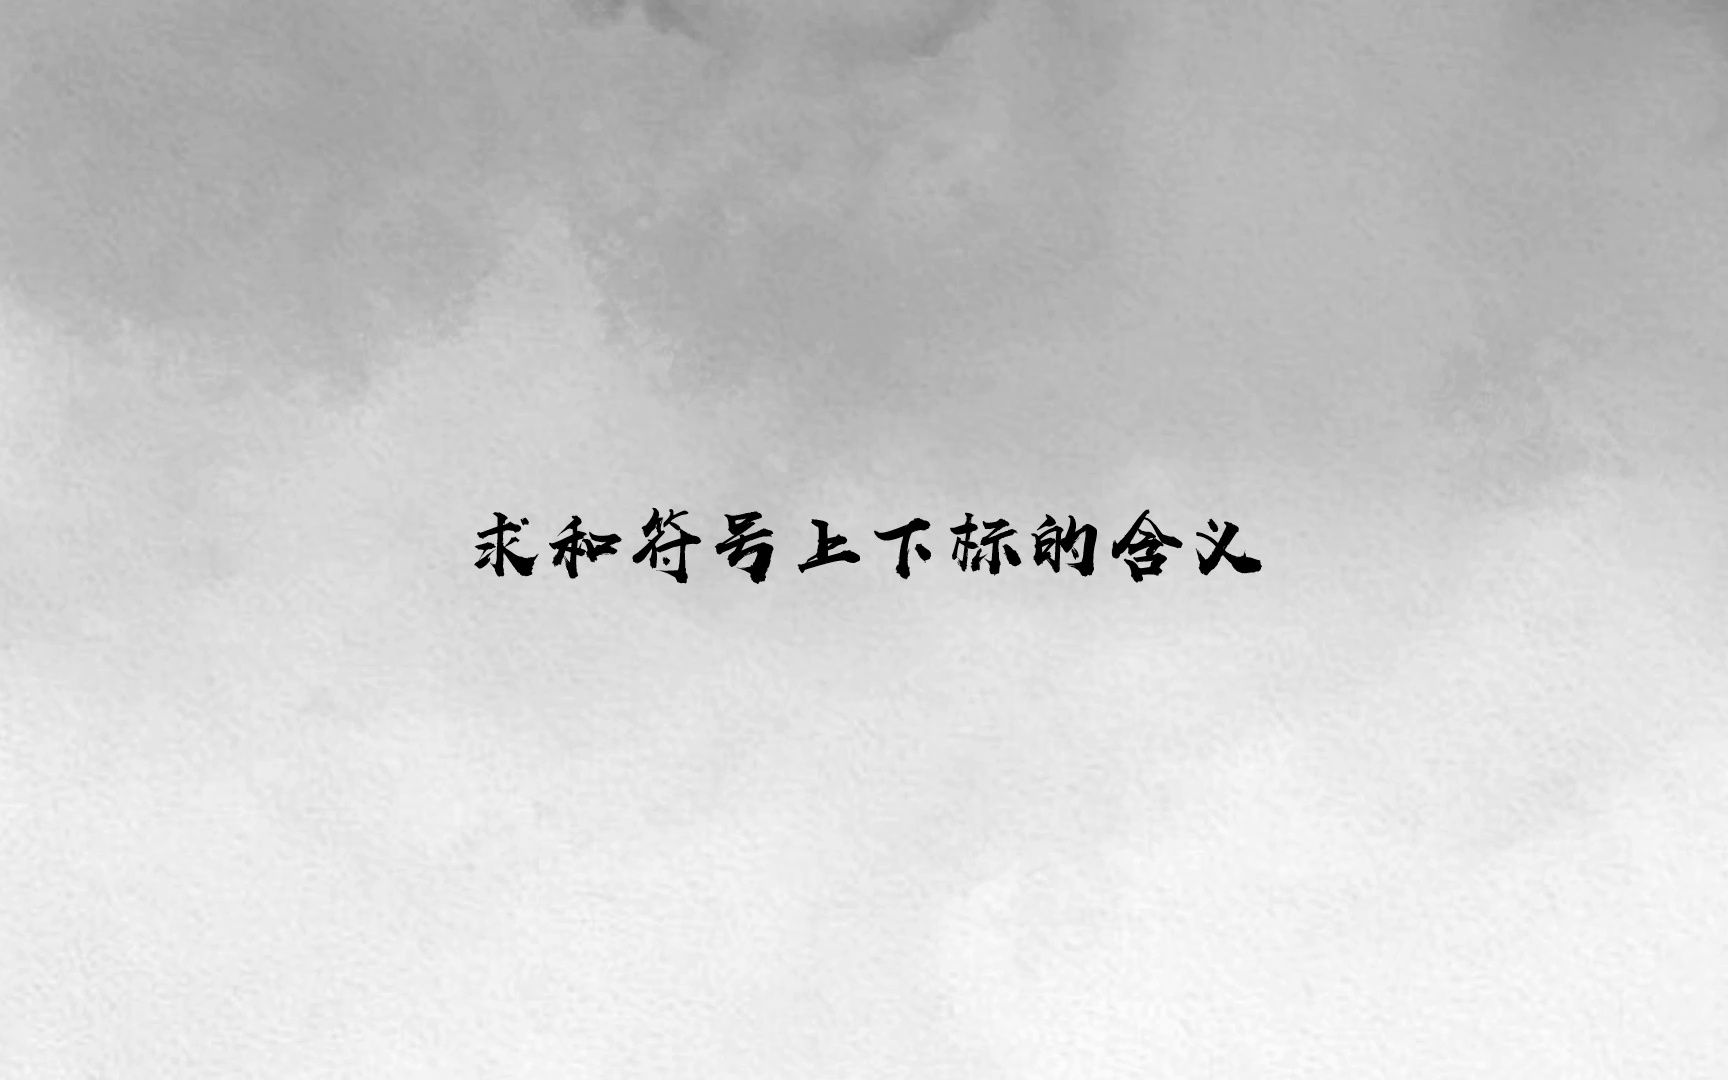 求和符号上下标的含义